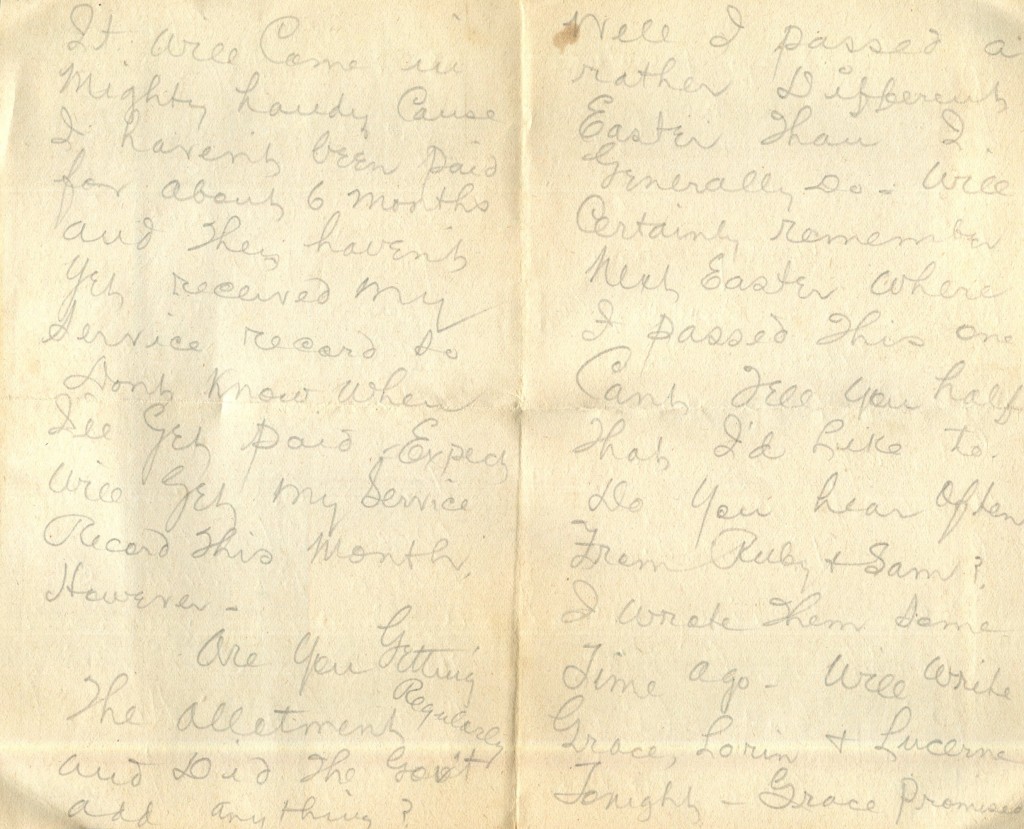 It will Come in
Mighty handy Cause
I haven't been paid
for about 6 months
and they haven't
yet received my
Service record so
Dont Know when
I'll Get paid. Expect
will get my Service
Record This Month,
However -
Are you Getting
The allotment Regularly
and Did the Gov't
add anything?
Well I passed a
rather Different
Easter Than I
Generally Do - will
Certainly remember
Next Easter where
I passed this one
Cant Tell you half
That I'd Like to.
Do you hear often
From Ruby + Sam?
I wrote Them Some
Time ago - will write
Grace, Lorin + Lucerne
Tonight - Grace Promised